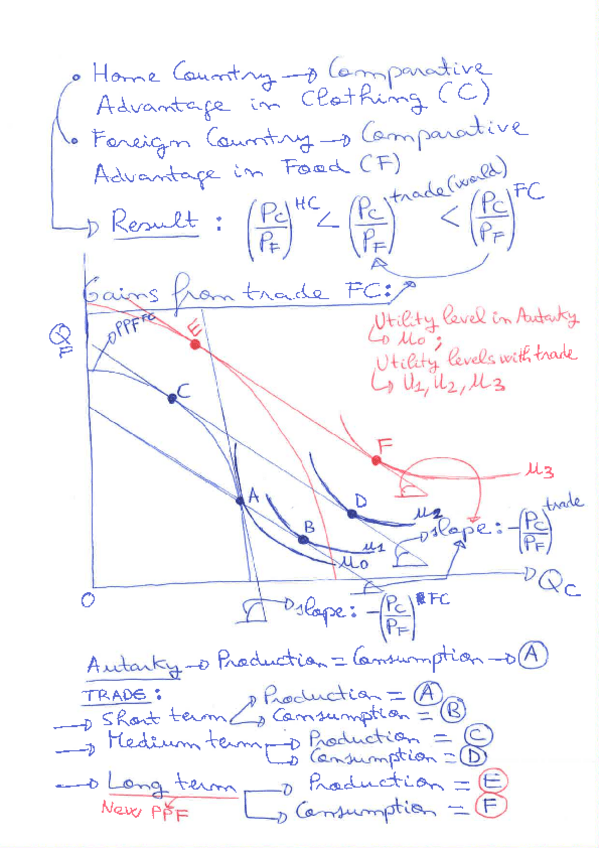 • Home Country → Comparative
Advantage in Clothing (C)
• Foreign Country → Comparative
Advantage in Food (F)
→ Result : (PC/PF)^HC < (PC/PF)^trade (world) < (PC/PF)^FC
Gains from trade FC:
Utility level in Autarky
↳ u0 ;
Utility levels with trade
↳ u1, u2, u3
QF
PPF^FC
E
C
F
A
B
D
u3
u2
u1
u0
slope: -(PC/PF)^trade
0
QC
slope: -(PC/PF)^FC
Autarky → Production = Consumption → A
TRADE :
→ Short term → Production = A
→ Consumption = B
→ Medium term → Production = C
→ Consumption = D
→ Long term → Production = E
New PPF
→ Consumption = F